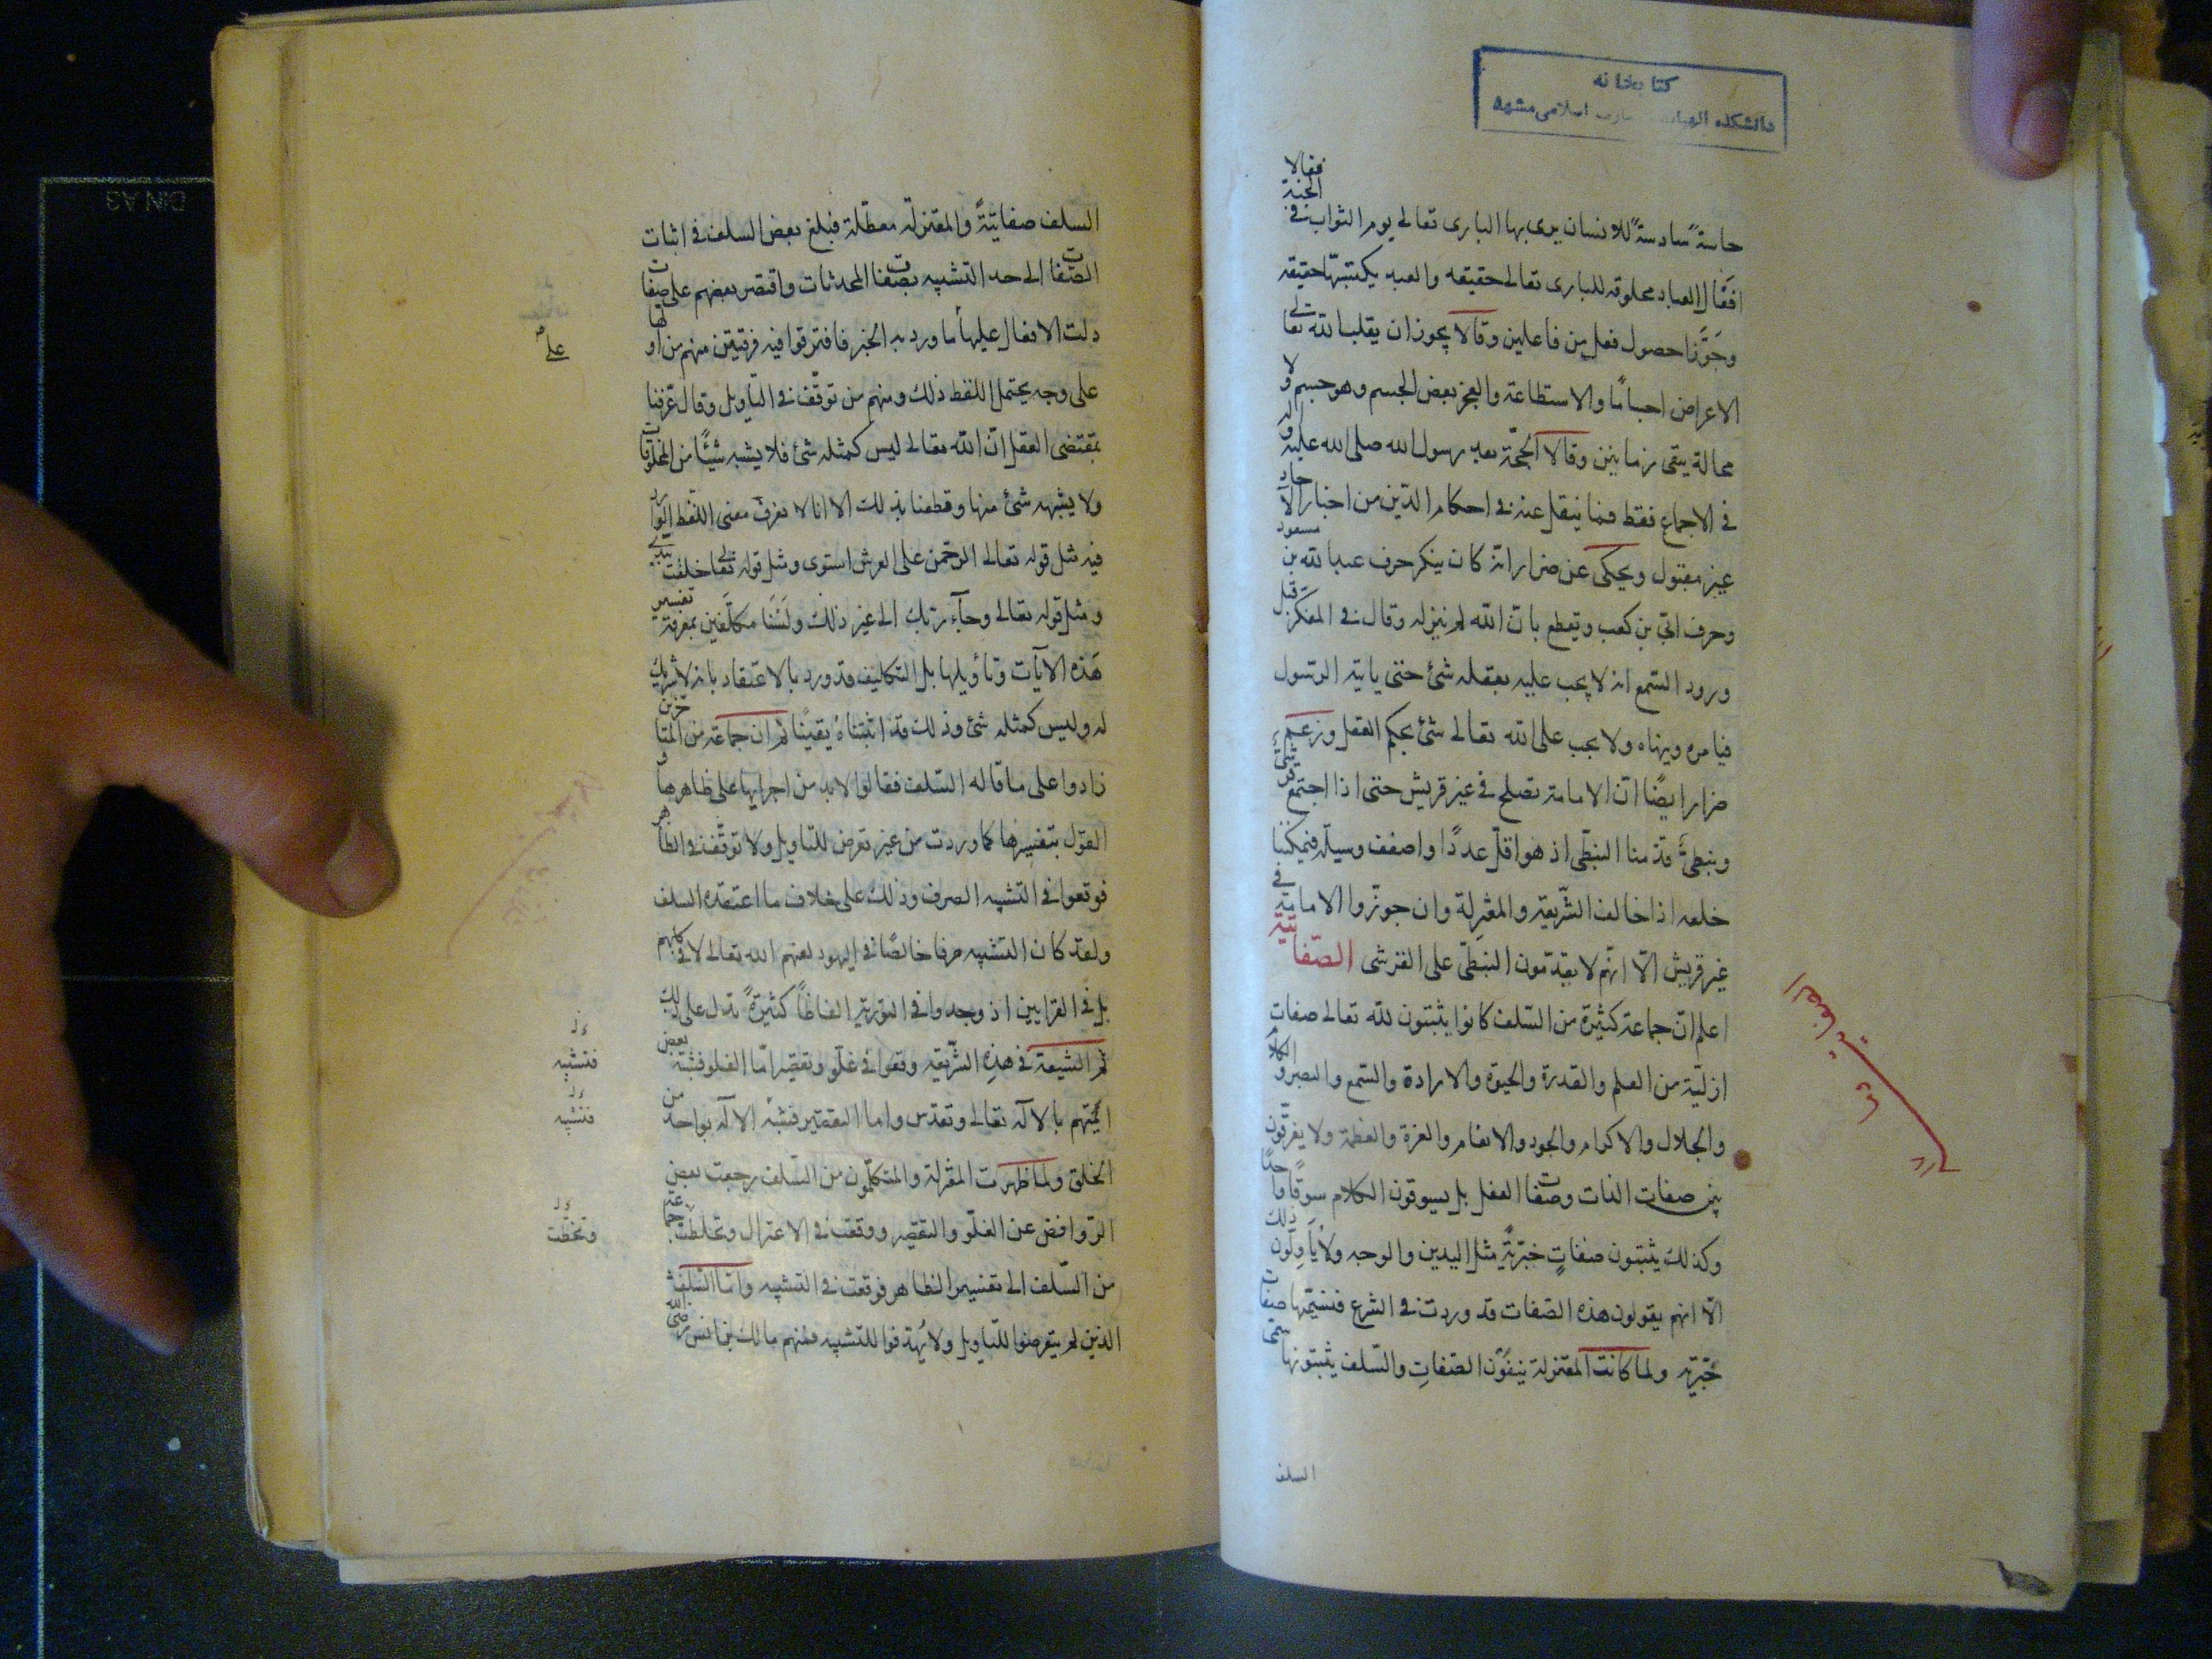 كتابخانه
دانشكده الهيات و معارف اسلامى مشهد
حاسة سادسة للانسان يرى بها البارى تعالى يوم الثواب فى الجنة فقالا
افعال العباد مخلوقه للبارى تعالى حقيقه والعبد يكتسبها حقيقه
وجَوَّزا حصول فعل من فاعلين وقالا يجوز ان يقلب الله تعالى
الاعراض اجسامًا والاستطاعة والعجز بعض الجسم وهو جسم ولا
محالة يبقى زمانين وقالا الحجّة بعد رسول الله صلى الله عليه واله
فى الاجماع فقط فما ينقل عنه فى احكام الدّين من اخبار الآحاد
غير مقبول ويحكى عن ضرار انّه كان ينكر حرف عبد الله بن مسعود
وحرف ابىّ بن كعب ويقطع بانّ الله لم ينزله وقال فى المفكّر قبل
ورود السّمع انه لا يجب عليه بعقله شئ حتى ياتيه الرّسول
فيامره وينهاه ولا يجب على الله تعالى شئ بحكم العقل وزعم
ضرار ايضًا انّ الامامة تصلح فى غير قريش حتى اذا اجتمع قرشىّ
ونبطىّ قدّمنا النبطّى اذ هو اقلّ عددًا واضعف وسيلة فيمكننا
خلعه اذا خالف الشّريعة والمعتزلة وان جوّزوا الامامة فى
غير قريش الّا انّهم لا يقدّمون النبطّى على القرشى الصّفاتية
اعلم انّ جماعة كثيرة من السّلف كانوا يثبتون لله تعالى صفات
ازليّة من العلم والقدرة والحيوة والارادة والسّمع والبصر والكلام
والجلال والاكرام والجود والانعام والعزة والعظمة ولا يفرّقون
بين صفات الذات وصفات الفعل بل يسوقون الكلام سوقًا واحدًا
وكذلك يثبتون صفاتٍ خبريّةً مثل اليدين والوجه ولا يأوّلون ذلك
الّا انهم يقولون هذه الصّفات قد وردت فى الشرع فنسمّيها صفات
خبريّه ولما كانت المعتزلة ينفَوْن الصّفاتِ والسّلف يثبتونها سمّى
السلف
السلف صفاتيّةً والمعتزله معطّلة فبلغ بعض السلف فى اثبات
الصّفات الى حد التشبيه بصفات المحدثات واقتصر بعضهم على صفات
دلت الافعال عليها وما ورد به الخبر فافترقوا فيه فرقتين منهم من اولها
على
على وجه يحتمل اللفظ ذلك ومنهم من توقّف فى التّاويل وقال عرفنا
بمقتضى العقل انّ الله تعالى ليس كمثله شئ فلا يشبه شيئًا من المخلوقات
ولا يشبهه شئ منها وقطعنا بذلك الا انا لا نعرف معنى اللّفظ الوارد
فيه مثل قوله تعالى الرّحمن على العرش استوى ومثل قوله تعالى خلقت بيدى
ومثل قوله تعالى وجآء ربّك الى غير ذلك ولَسْنَا مكلّفين بمعرفة تفسير
هَذه الآيات وتأويلها بل التكليف قد ورد بالاعتقاد بانه لا شريك
له وليس كمثله شئ وذلك قد اثبتناهُ يقينًا ثم ان جماعة من المتاخرين
زادوا على ما قاله السّلف فقالوا لابد من اجرايها على ظاهرها و
القول بتفسيرها كما وردت من غير تعرض للتاويل ولا توقّف فى الظاهر
فوقعوا فى التشبيه الصرف وذلك على خلاف ما اعتقده السلف
ولقد كان التشبيه صرفا خالصًا فى اليهود لعنهم الله تعالى لا فى كلهم
بل فى القرايين اذ وجدوا فى التورية الفاظًا كثيرةً تدل على ذلك
ثم الشيعة فى هذه الشّريعة وقعوا فى غلّو وتقصير امّا الغلو فشبّه بعض
فتشبيه
ايمّتهم بالاله تعالى وتقدّس واما التقصير فشبه الاله بواحد من
فتشبيه
الخلق ولما ظهرت المعتزلة والمتكلّمون من السّلف رجعت بعض
الرّوافض عن الغلّو والتقصير ووقعت فى الاعتزال وتخلّطت جماعة
وتخطّت
من السّلف الى تفسير الظاهر فوقعت فى التشبيه وامّا السّلف
الذين لم يتعرضوا للتّاويل ولا يُهدفوا للتشبيه فمنهم مالك بن انس رضى الله